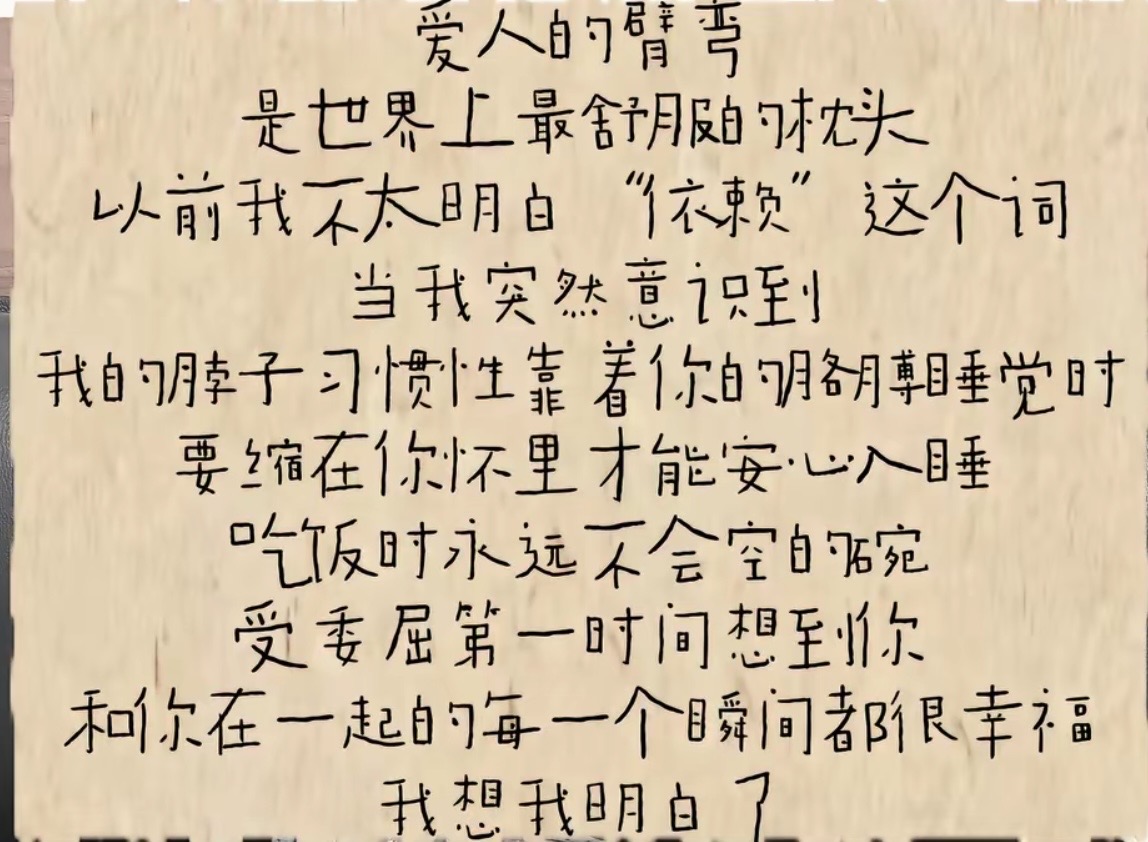 爱人的臂弯
是世界上最舒服的枕头
以前我不太明白“依赖”这个词
当我突然意识到
我的脖子习惯性靠着你的胳膊睡觉时
要缩在你怀里才能安心入睡
吃饭时永远不会空的碗
受委屈第一时间想到你
和你在一起的每一个瞬间都很幸福
我想我明白了